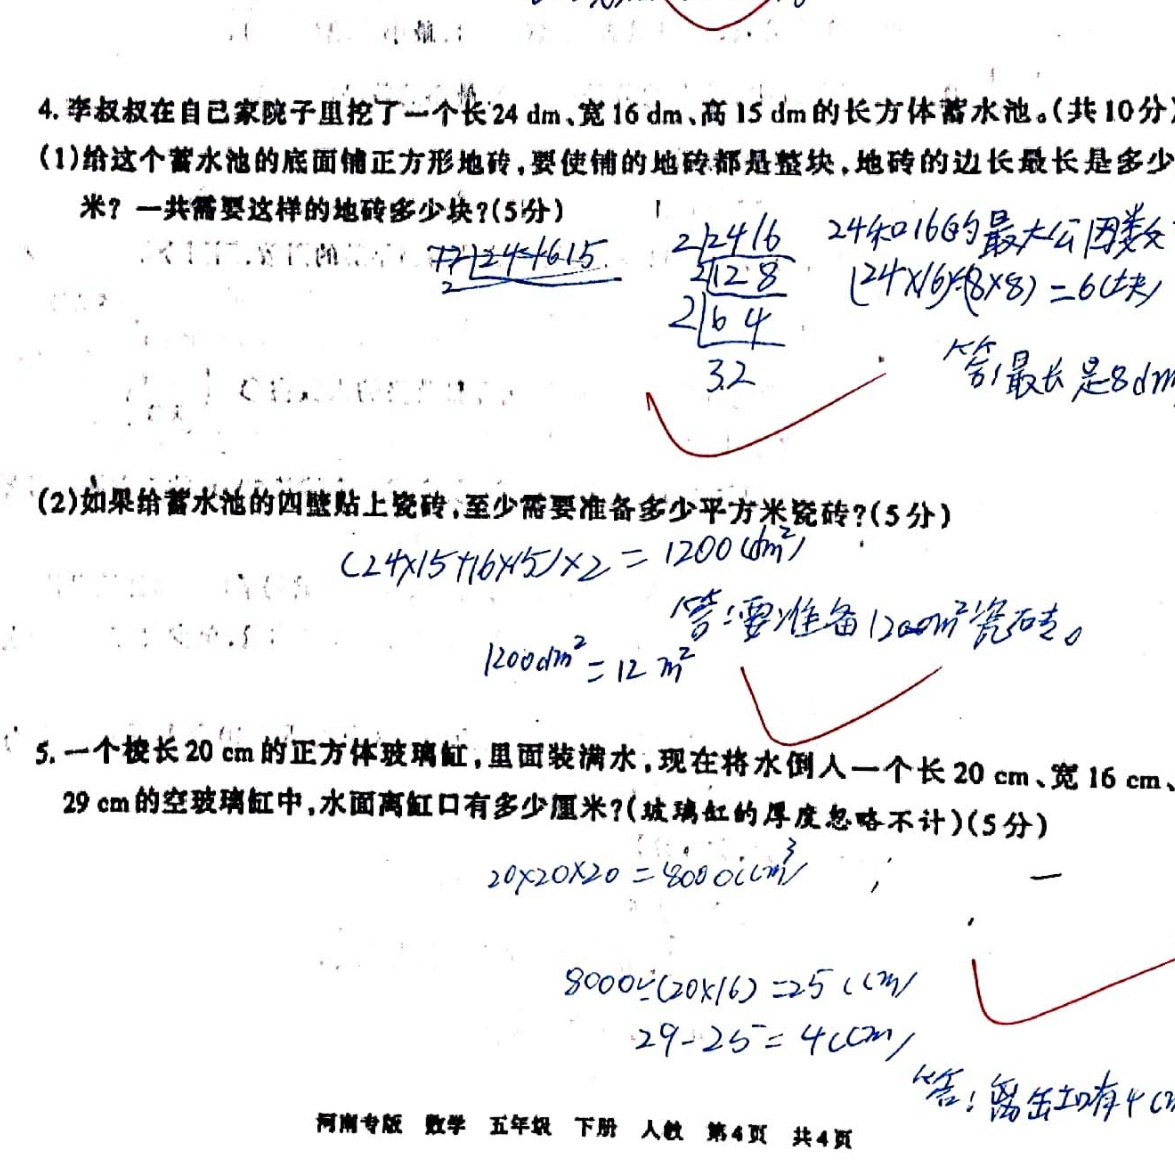 4. 李叔叔在自己家院子里挖了一个长24 dm、宽16 dm、高15 dm的长方体蓄水池。(共10分)
(1)给这个蓄水池的底面铺正方形地砖,要使铺的地砖都是整块,地砖的边长最长是多少
米?一共需要这样的地砖多少块?(5分)
2 24 16
2 12 8
2 6 4
3.2
24和16的最大公因数
(24×16)÷(8×8)=6(块)
答:最长是8dm
(2)如果给蓄水池的四壁贴上瓷砖,至少需要准备多少平方米瓷砖?(5分)
(24×15+16×15)×2=1200(dm²)
1200dm²=12m²
答:要准备1200m²瓷砖。
5. 一个棱长20 cm的正方体玻璃缸,里面装满水,现在将水倒人一个长20 cm、宽16 cm、
29 cm的空玻璃缸中,水面离缸口有多少厘米?(玻璃缸的厚度忽略不计)(5分)
20×20×20=8000(cm³)
8000÷(20×16)=25(cm)
29-25=4(cm)
答:离缸口有4cm
河南专版 数学 五年级 下册 人教 第4页 共4页